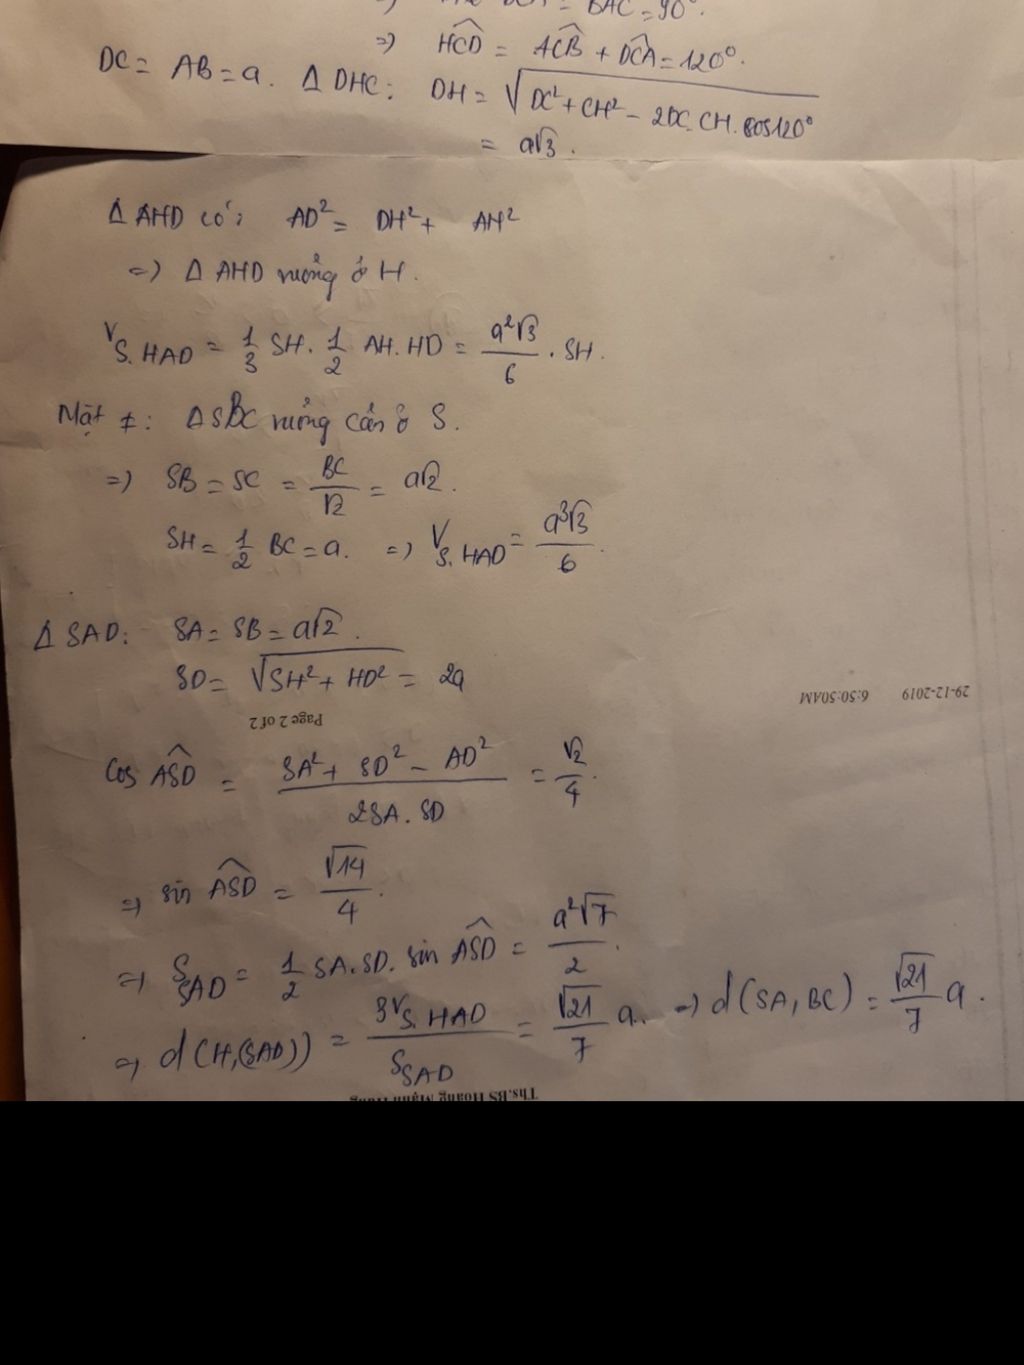 BAC = 90°.
=> HCD = ACB + DCA = 120°.
DC = AB = a. Δ DHC: DH = √(DC² + CH² - 2DC.CH.cos120°)
= a√3.
Δ AHD có: AD² = DH² + AH²
=> Δ AHD vuông ở H.
V S.HAD = 1/3 SH. 1/2 AH.HD = a²√3/6 . SH.
Mặt ≠: ΔSBC vuông cân ở S.
=> SB = SC = BC/√2 = a√2.
SH = 1/2 BC = a. => V S.HAD = a³√3/6.
Δ SAD: SA = SB = a√2.
SD = √(SH² + HD²) = 2a
29-12-2019 6:50:50AM
Page 2 of 2
Cos ASD = (SA² + SD² - AD²)/(2SA.SD) = √2/4.
=> sin ASD = √14/4.
=> S SAD = 1/2 SA.SD. sin ASD = a²√7/2.
=> d(H,(SAD)) = 3V S.HAD / S SAD = √21/7 a. => d(SA, BC) = √21/7 a.
Ths.BS Hoàng Mạnh